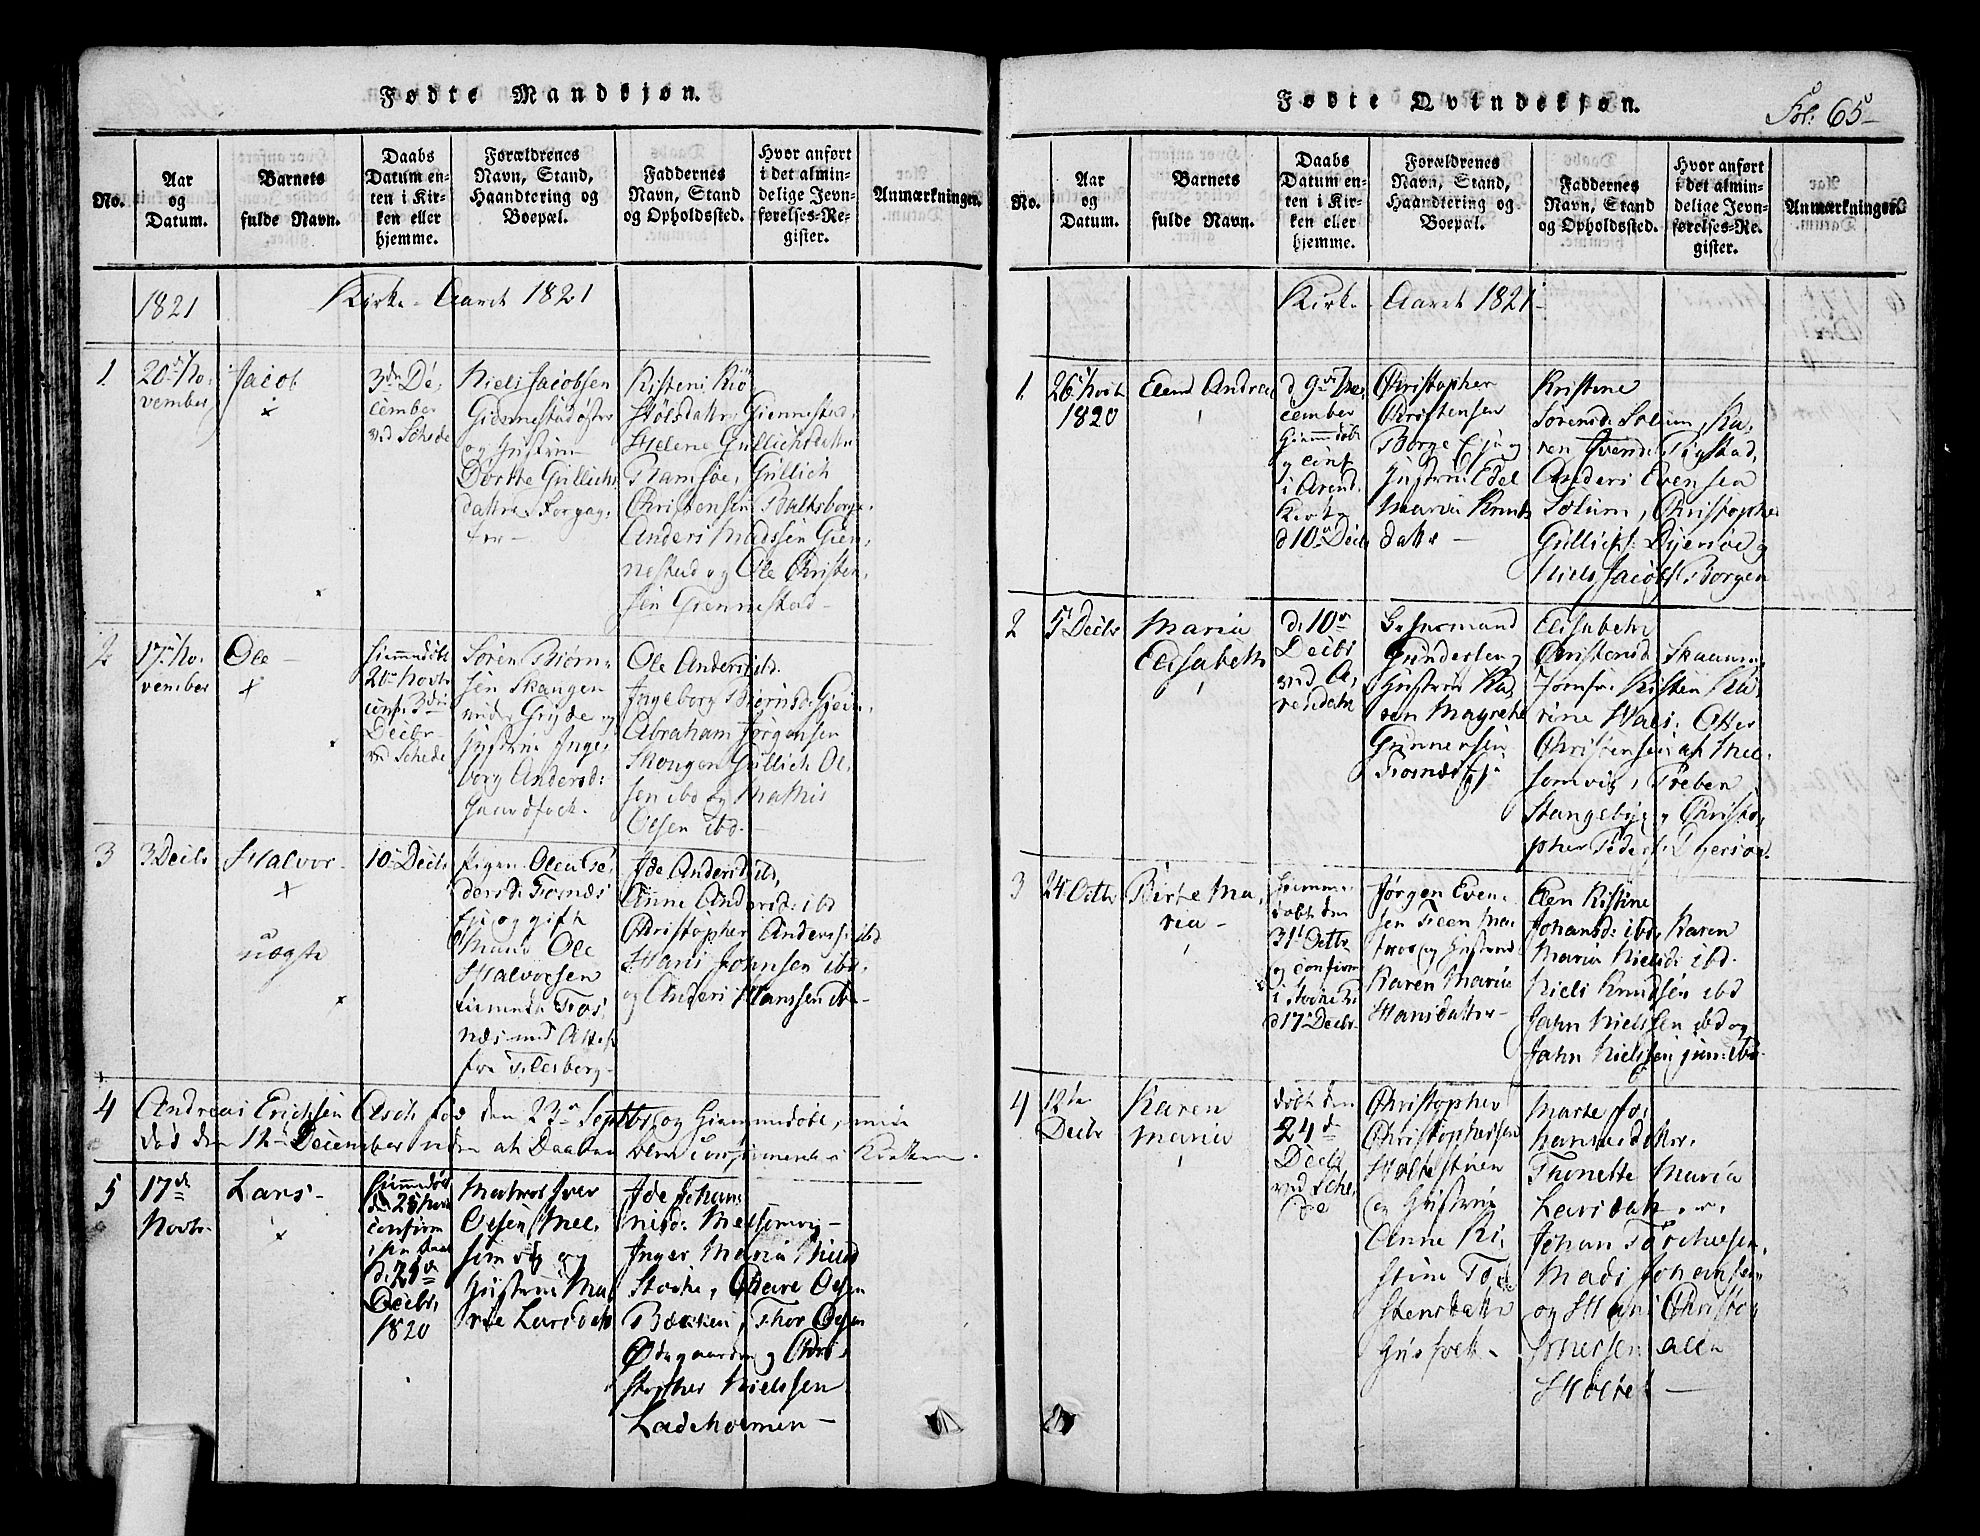 Fødte Mandkjøn.
No.
Aar
og
Datum.
Barnets
fulde Navn.
Daabs
Datum en-
ten i Kir-
ken eller
hjemme.
Forældrenes
Navn, Stand,
Haandtering og
Boepæl.
Faddernes
Navn, Stand
og Opholdssted.
Hvor anført
i det almin-
delige Jevn-
førelses-Re-
gister.
Anmærkninger.
1821
Kirke-Aaret 1821
1
20de No-
vember
Jacob
3de De-
cember
ved Schede
Niels Jacobsen
Giennestad
og Hustrue
Dorthe Gullichs
datter
Kisten
Giennestad,
Helene Gullichsdatter
Ramsøe, Gullich
Christensen
Anders Madssen Gien-
nestad og Ole Christen-
sen Giennestad-
2
17de No-
vember
Ole-
Hiemmedøbt
20de Novbr
conf. 3die
Decbr
ved Schede
Søren Biørn-
sen Skaugen
under
Hustrue Inge-
borg Andersd:
Gaardfolk.
Ole Anders ibd.
Ingeborg Biørnsd:
Abraham Jørgensen
Skougen Gullich Ol-
sen ibd og Mathis
Olsen ibd.-
3
3 Decbr
Halvor-
uægte
10 Decbr
Pigen Olea Pe-
dersd: Fosnæs
og gift
Mand Ole
Halvorsen
Fos-
næs med Attest
fra Flesberg-
Ide Andersd ibd,
Anne Andersd: ibd
Christopher Anders: ibd
Hans Johnsen ibd.
og Anders Hanssen ibd-
4
Andreas Erichsen Asch fød den 23de Septbr og Hiemmedøbt, men
død den 12te December uden at Daaben blev confirmeret i Kirken.
5
17de
Novbr.
Lars-
Hiemmedøbt
d. 25 Novbr
confirm
d. 21de
Decbr.
1820
Matros Iver
Olsen Mel-
somvig og
Hustrue Ma-
rie Larsdatr
Ide Johan-
nisd: Melsomvig-
Inger Maria Nielsd
Stocke, Olsen
Bäckken, Thor Olsen
Ødegaarden og Chri-
stopher Nielssen
Ladeholmen-
Fødte Qvindekjøn.
Fol: 65-
No.
Aar
og
Datum.
Barnets
fulde Navn.
Daabs
Datum en-
ten i Kir-
ken eller
hjemme.
Forældrenes
Navn, Stand,
Haandtering og
Boepæl.
Faddernes
Navn, Stand
og Opholdssted.
Hvor anført
i det almin-
delige Jevn-
førelses-Re-
gister.
Anmærkninger.
Kirke-Aaret 1821-
1
26 Novbr
1820
Elend Andrea
d 9de De-
cember
Hiemmedøbt
og conf
i Arend.
Kirke
d 10de Decbr
Christopher
Christensen
Borge og
Hustrue Edel
Maria Knuds
datter-
Kristine
Sørensd: Solum, Ka-
ren Evend:
Anders Evensen
Solum, Christopher
Gullichs: Dyersøe og
Niels Jacobs: Borgen
2
5 Decbr
Maria
Elisabeth
d: 10de
Decbr
ved A-
rendahl
Hr
Gundersen og
Hustrue Ka-
ren Magrethe
Gunnersen
Fosnæs
Elisabeth
Christensd
Jomfr: Kisten Ka-
rine Otter
Christensen af Mel-
somvig, Preben
Stangeby, Christo-
pher Peders: Dyersøe.
3
24 Octbr
Birthe Ma-
ria-
Hiemme-
døbt den
31te Octbr
og confirm
i Stocke K:
d 17de Decbr.
Jørgen Even-
sen Feen Ma-
tros og Hustrue
Karen Marie
Hansdatter-
Elen Kistine
Johansd: ibd, Karen
Maria Nielsd: ibd.
Niels Knudsen ibd
Jahn Nielssen ibd og
Jahn Nielssen jun: ibd.
4
12te
Decbr
Karen
Maria
døbt den
24de
Decbr
ved Sche-
de
Christopher
Christophersen
og Hustrue
Anne Ki-
stine
stensdatter
Huusfolk.
Marte Jo-
hannesdatter.
Thonette Maria
Larsdatr.
Johan
Mads Johansen
og Hans Christo-
phersen alle
Holtet-